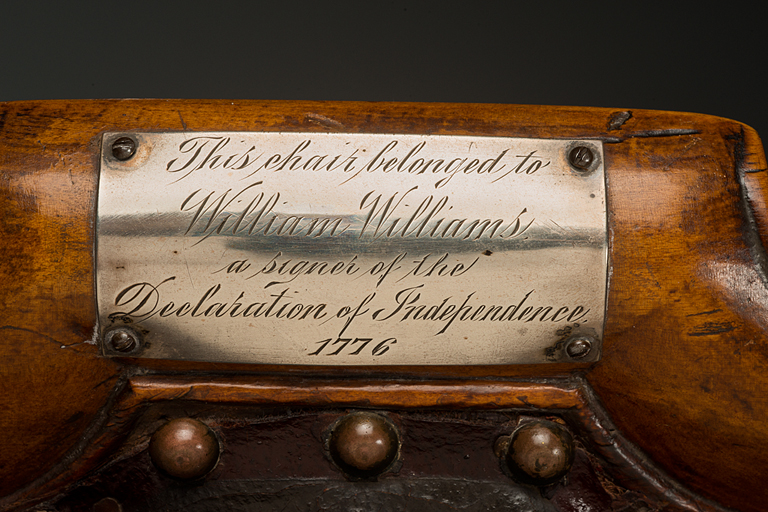 This chair belonged to
William Williams
a signer of the
Declaration of Independence.
1776